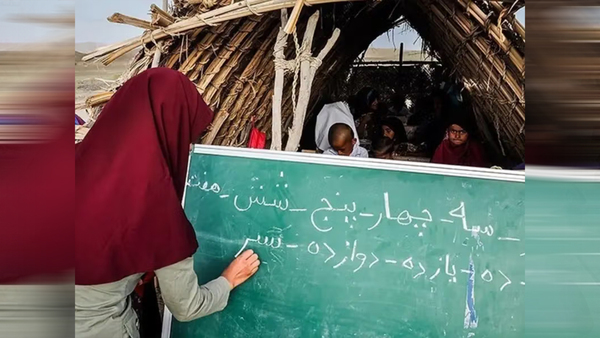 - سه - چهار - پنج - شش - هفت
ده - یازده - دوازده -